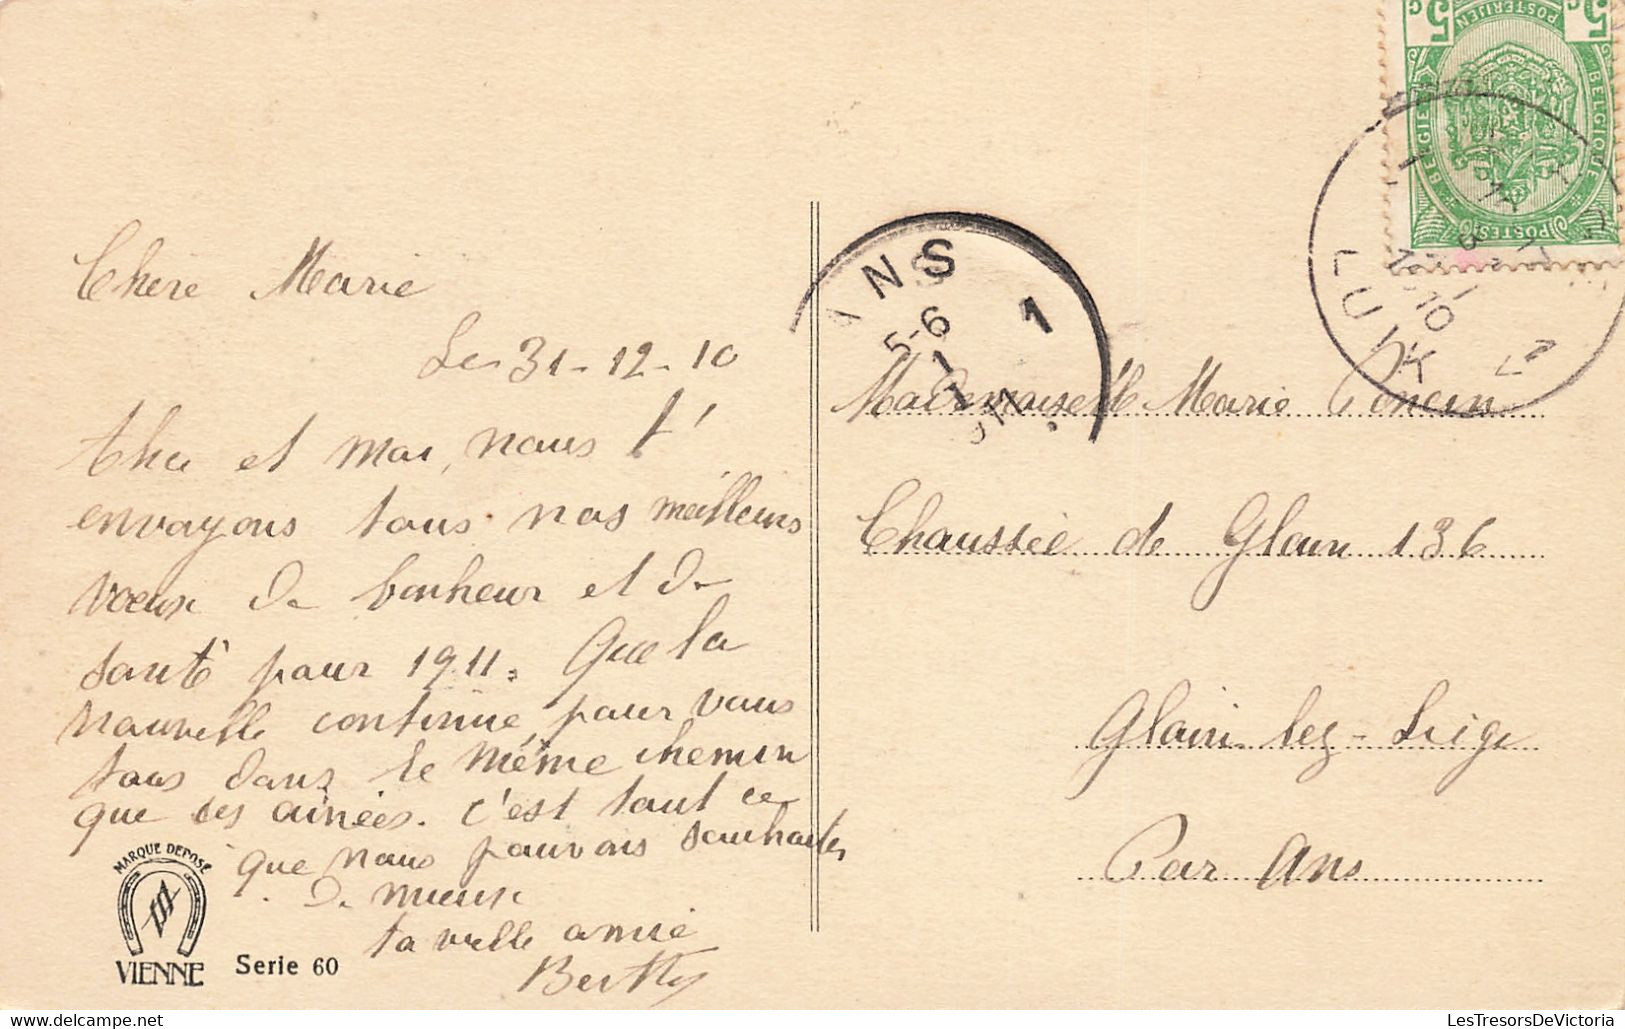 Chère Marie
Le 31-12-10
et moi, nous t'
envoyons tous nos meilleurs
voeux de bonheur et de
santé pour 1911. Que la
nouvelle continue pour vous
tous dans le même chemin
que ses ainées. C'est tout ce
que nous pouvons souhaiter
de mieux
ta vielle amie
Berthy
MARQUE DEPOSE
VIENNE
Serie 60
ANS
5-6
1
1
1
BELGIE BELGIQUE
POSTERIJEN
POSTES
5 C
5 C
LUIK
Mademoiselle Marie
Chaussée de Glain 136
Glain-lez-Liège
Par Ans
LesTresorsDeVictoria
LesTresorsDeVictoria.com